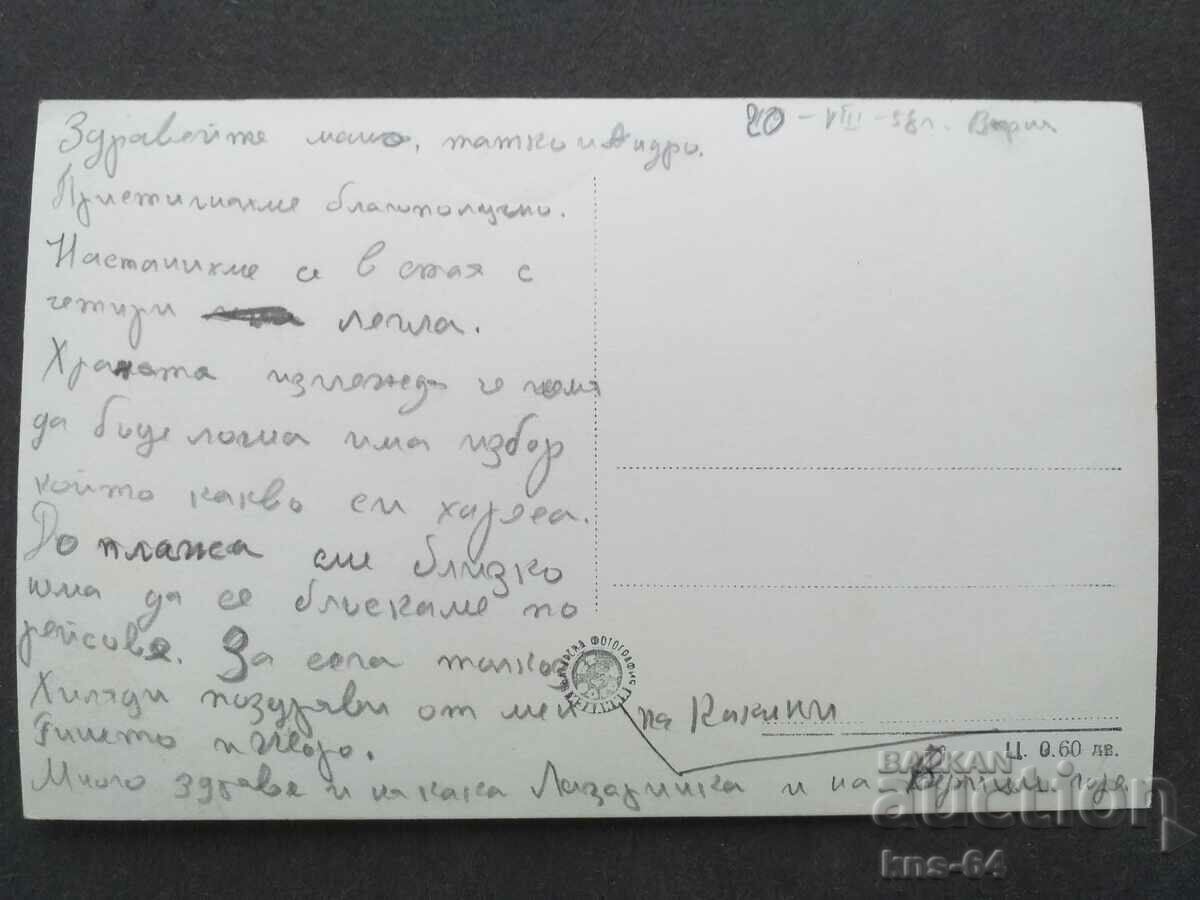 20 - VIII - 58 г. Варна
Здравейте мамо, татко и Андро.
Пристигнахме благополучно.
Настанихме се в стая с
четири легла.
Храната изглежда че няма
да бъде лоша има избор
който какво си хареса.
До плажа сме близко
няма да се блъскаме по
рейсове. За сега толкова
Хиляди поздрави от мен
и Жоро.
Много здраве и на кака Лазаринка и на
на Какини
БЪЛГАРСКА ФОТОГРАФИЯ
Ц. 0.60 лв.
BALKAN
auction
kns-64